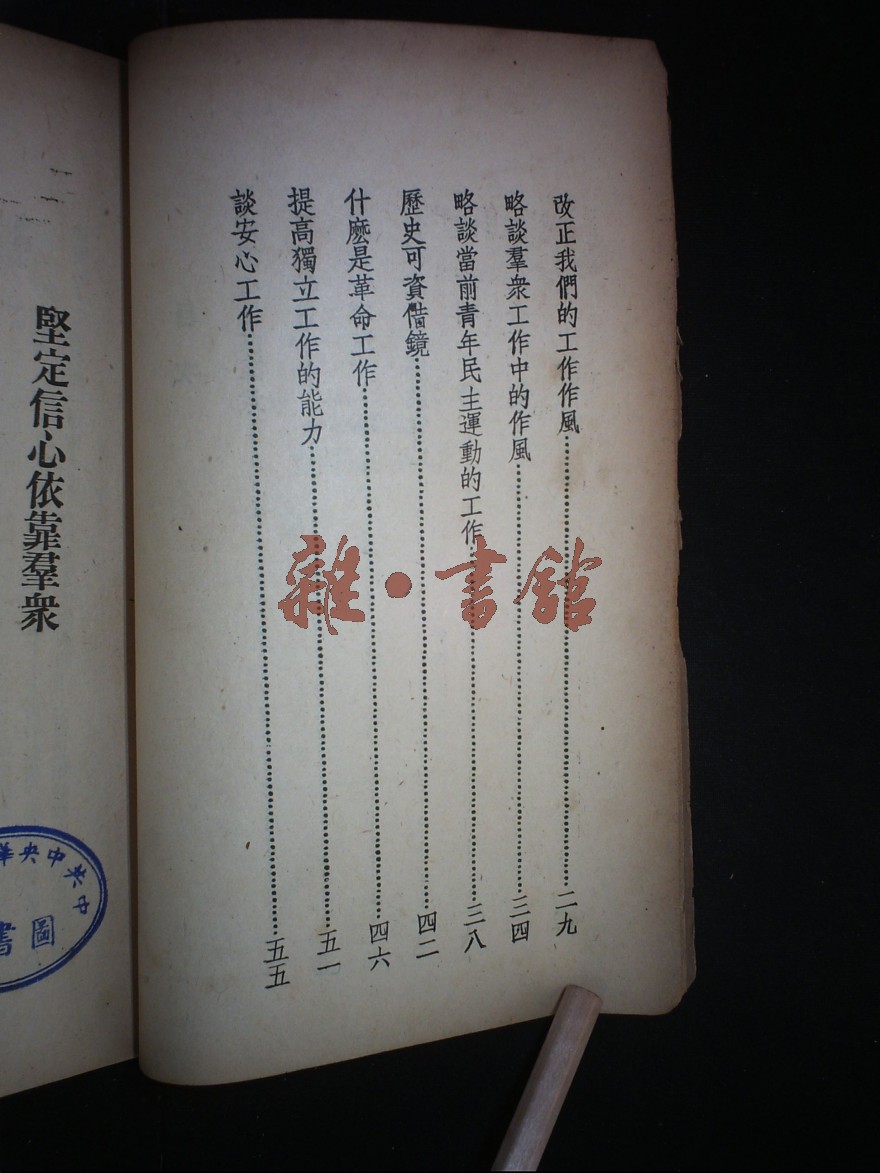 改正我們的工作作風……二九
略談羣衆工作中的作風……三四
略談當前青年民主運動的工作……三八
歷史可資借鏡……四二
什麽是革命工作……四六
提高獨立工作的能力……五一
談安心工作……五五
堅定信心依靠羣衆
中共中央華
圖書
雜·書館